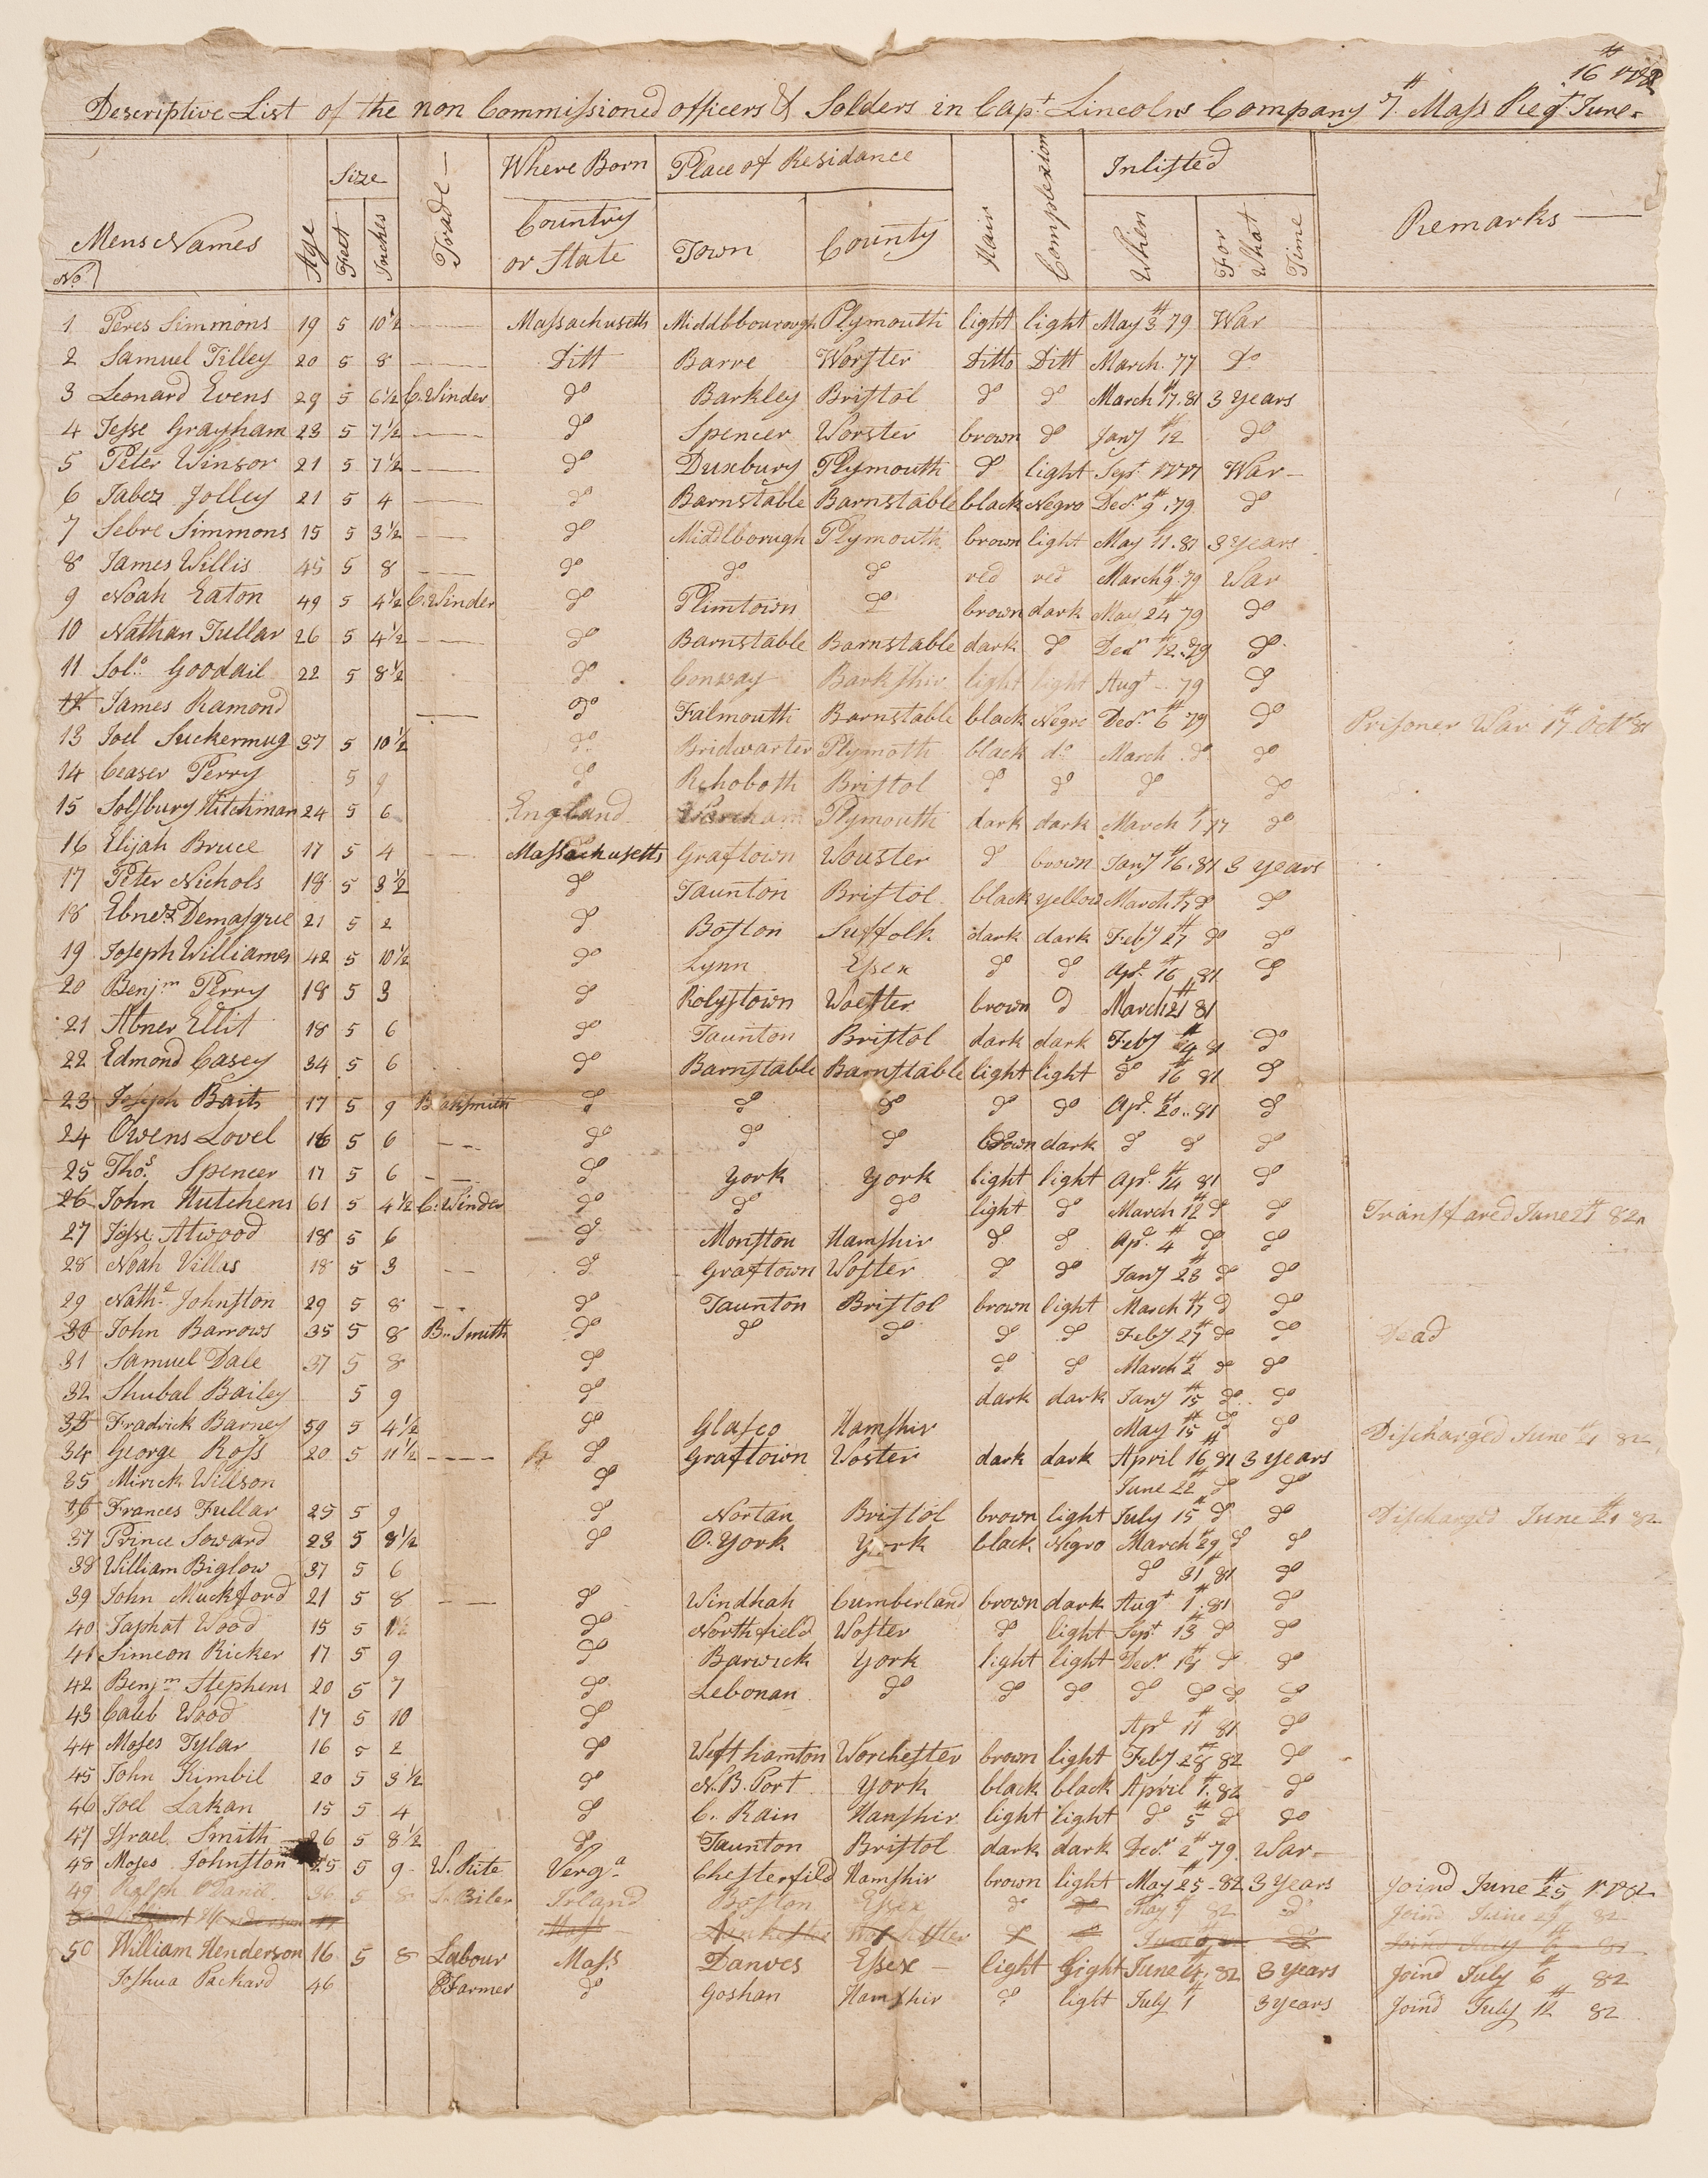 16th 1782
Descriptive List of the non Commissioned officers & Solders in Capt Lincolns Company 7th Mass Regt June
Mens Names
No
Age
Size
Feet
Inches
Trade
Where Born
Country or State
Place of Residance
Town
County
Hair
Complexion
Inlisted
When
For What Time
Remarks
1 Peres Simmons 19 5 10½ Massachusetts Middlbbourough Plymouth light light May 3th 79 War
2 Samuel Tilley 20 5 8 Ditt Barre Worster Ditto Ditt March. 77 Do
3 Leonard Evens 29 5 6½ C. Winder do Barkley Bristol do do March 17th. 81 3 years
4 Jesse Grayham 23 5 7½ do Spencer Worster brown do Jany 12th do
5 Peter Winsor 21 5 7½ do Duxbury Plymouth do light Sept 1777 War
6 Jabez Jolley 21 5 4 do Barnstable Barnstable black Negro Decr 9th. 79 do
7 Sebre Simmons 15 5 3½ do Middlborugh Plymouth brown light May 11th. 81 3 years
8 James Willis 45 5 8 do do do red red March 9th. 79 War
9 Noah Eaton 49 5 4½ C. Winder do Plimtown do brown dark May 24th 79 do
10 Nathan Tullar 26 5 4½ do Barnstable Barnstable dark do Decr 12th. 79 do
11 Solo Goodail 22 5 8½ do Conway Barkshir light light Augt 79 do
12 James Ramond do Falmouth Barnstable black Negro Decr 6th 79 do Prisoner War 17th Octr 81
13 Joel Suckermug 37 5 10½ do Bridwarter Plymoth black do March do do
14 Ceaser Perry 5 9 do Rehoboth Bristol do do do do
15 Solsbury Hitchman 24 5 6 England Wareham Plymouth dark dark March 1th 77 do
16 Elijah Bruce 17 5 4 Massachusetts Graftown Wouster do brown Jany 16th. 81 3 years
17 Peter Nichols 18 5 3½ do Taunton Bristol black yellow March 17th do do
18 Ebnezr Demasque 21 5 2 do Boston Suffolk dark dark Feby 27th do do
19 Joseph Williams 42 5 10½ do Lynn Essex do do Apl 16th 81 do
20 Benjm Perry 18 5 3 do Rolystown Woester brown do March 21th 81
21 Abner Ellit 18 5 6 do Taunton Bristol dark dark Feby 81 do
22 Edmond Casey 34 5 6 do Barnstable Barnstable light light do 16th 81 do
23 Joseph Baits 17 5 9 Blaksmith do do do do do Apl 20th. 81 do
24 Owens Lovel 16 5 6 do do do brown dark do do do
25 Thos Spencer 17 5 6 do York York light light Apl 14th 81 do
26 John Hutchens 61 5 4½ C. Winder do do do light do March 12th do do Transfared June 21th 82
27 Jesse Atwood 18 5 6 do Monston Hamshir do do Apl 4th do do
28 Noah Villas 18 5 3 do Graftown Woster do do Jany 23th do do
29 Nathl Johnston 29 5 8 do Taunton Bristol brown light March 17th do do
30 John Barrows 35 5 8 B. Smith do do do do do Feby 27th do do Dead
31 Samuel Dale 37 5 8 do do do March 2th do do
32 Shubal Bailey 5 9 do dark dark Jany 15th do do
33 Fradrick Barney 59 5 4½ do Glasco Hamshir May 15th do do Discharged June 21th 82
34 George Ross 20 5 11½ do Graftown Woster dark dark April 16th 81 3 years
35 Mirick Willson do June 22th do do
36 Frances Fullar 25 5 9 do Nortan Bristol brown light July 15th do do Discharged June 21th 82
37 Prince Soward 23 5 8½ do O. York York black Negro March 29th do do
38 William Biglow 37 5 6 do 31th 81 do
39 John Muckford 21 5 8 do Windhah Cumberland brown dark Augt 1th. 81 do
40 Japhat Wood 15 5 do Northfield Woster do light Sept 13th do do
41 Simeon Ricker 17 5 9 do Barwick York light light Decr 18th do do
42 Benjm Stephens 20 5 7 do Lebonan do do do do do do do
43 Caleb Wood 17 5 10 do Apl 11th 81 do
44 Moses Tylar 16 5 2 do Westhamton Worchester brown light Feby 28th 82 do
45 John Kimbil 20 5 3½ do N. B. Port York black black April 1th. 82 do
46 Joel Lakan 15 5 4 do C. Rain Hanshir light light do 5th do do
47 Israel Smith 26 5 8½ do Taunton Bristol dark dark Decr 2th 79. War
48 Moses Johnston 25 5 9 W. Rite Verga Chesterfild Hamshir brown light May 25 82 3 years Joind June 25th 1782
49 Ralph ODanil 36 5 8 Biler Irland Boston Essex do do May 9 82 do Joind June 29th 82
50 William Henderson 16 5 8 Labour Mass Danves Essex light light June 82 3 years Joind July 6th 82
Joshua Packard 46 Farmer do Goshan Hamshir do light July 1th 3 years Joind July 12th 82